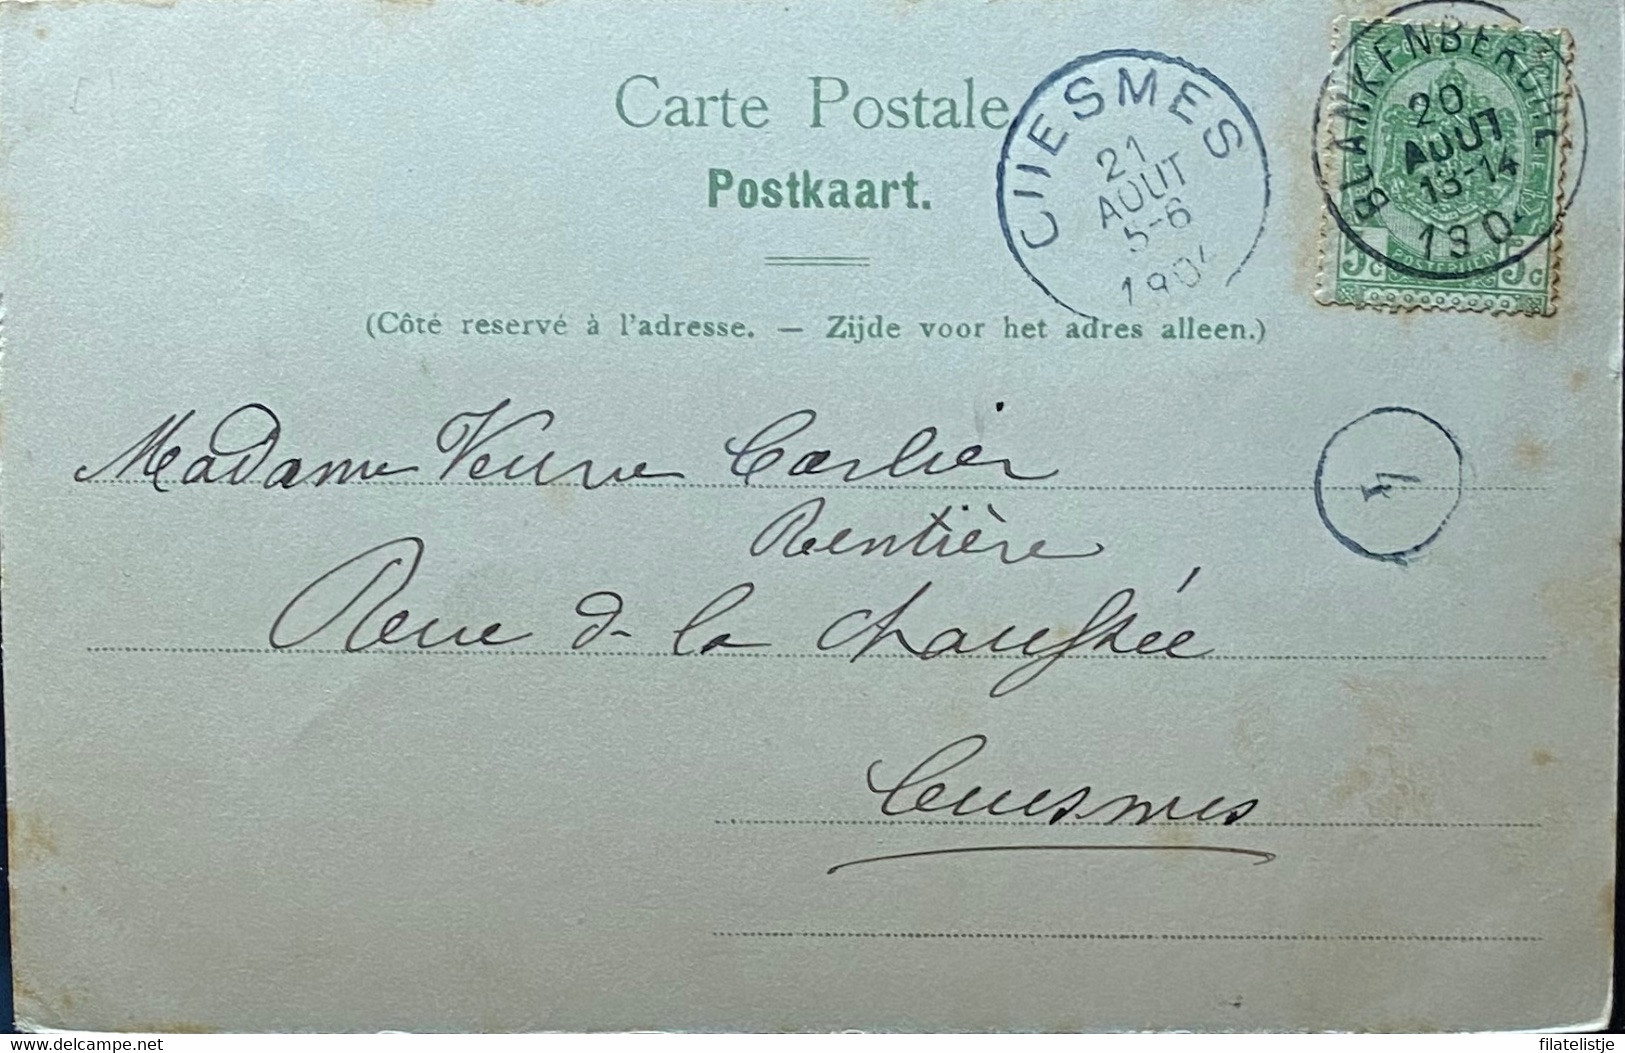 Carte Postale
Postkaart.
(Côté reservé à l'adresse. — Zijde voor het adres alleen.)
CUESMES
21
AOUT
5-6
1904
BLANKENBERGHE
20
AOUT
13-14
1904
5c POSTERIJEN 5c
1
Madame Veuve Carlier
Rentière
Rue de la chaussée
Cuesmes
delcampe.net
filatelistje